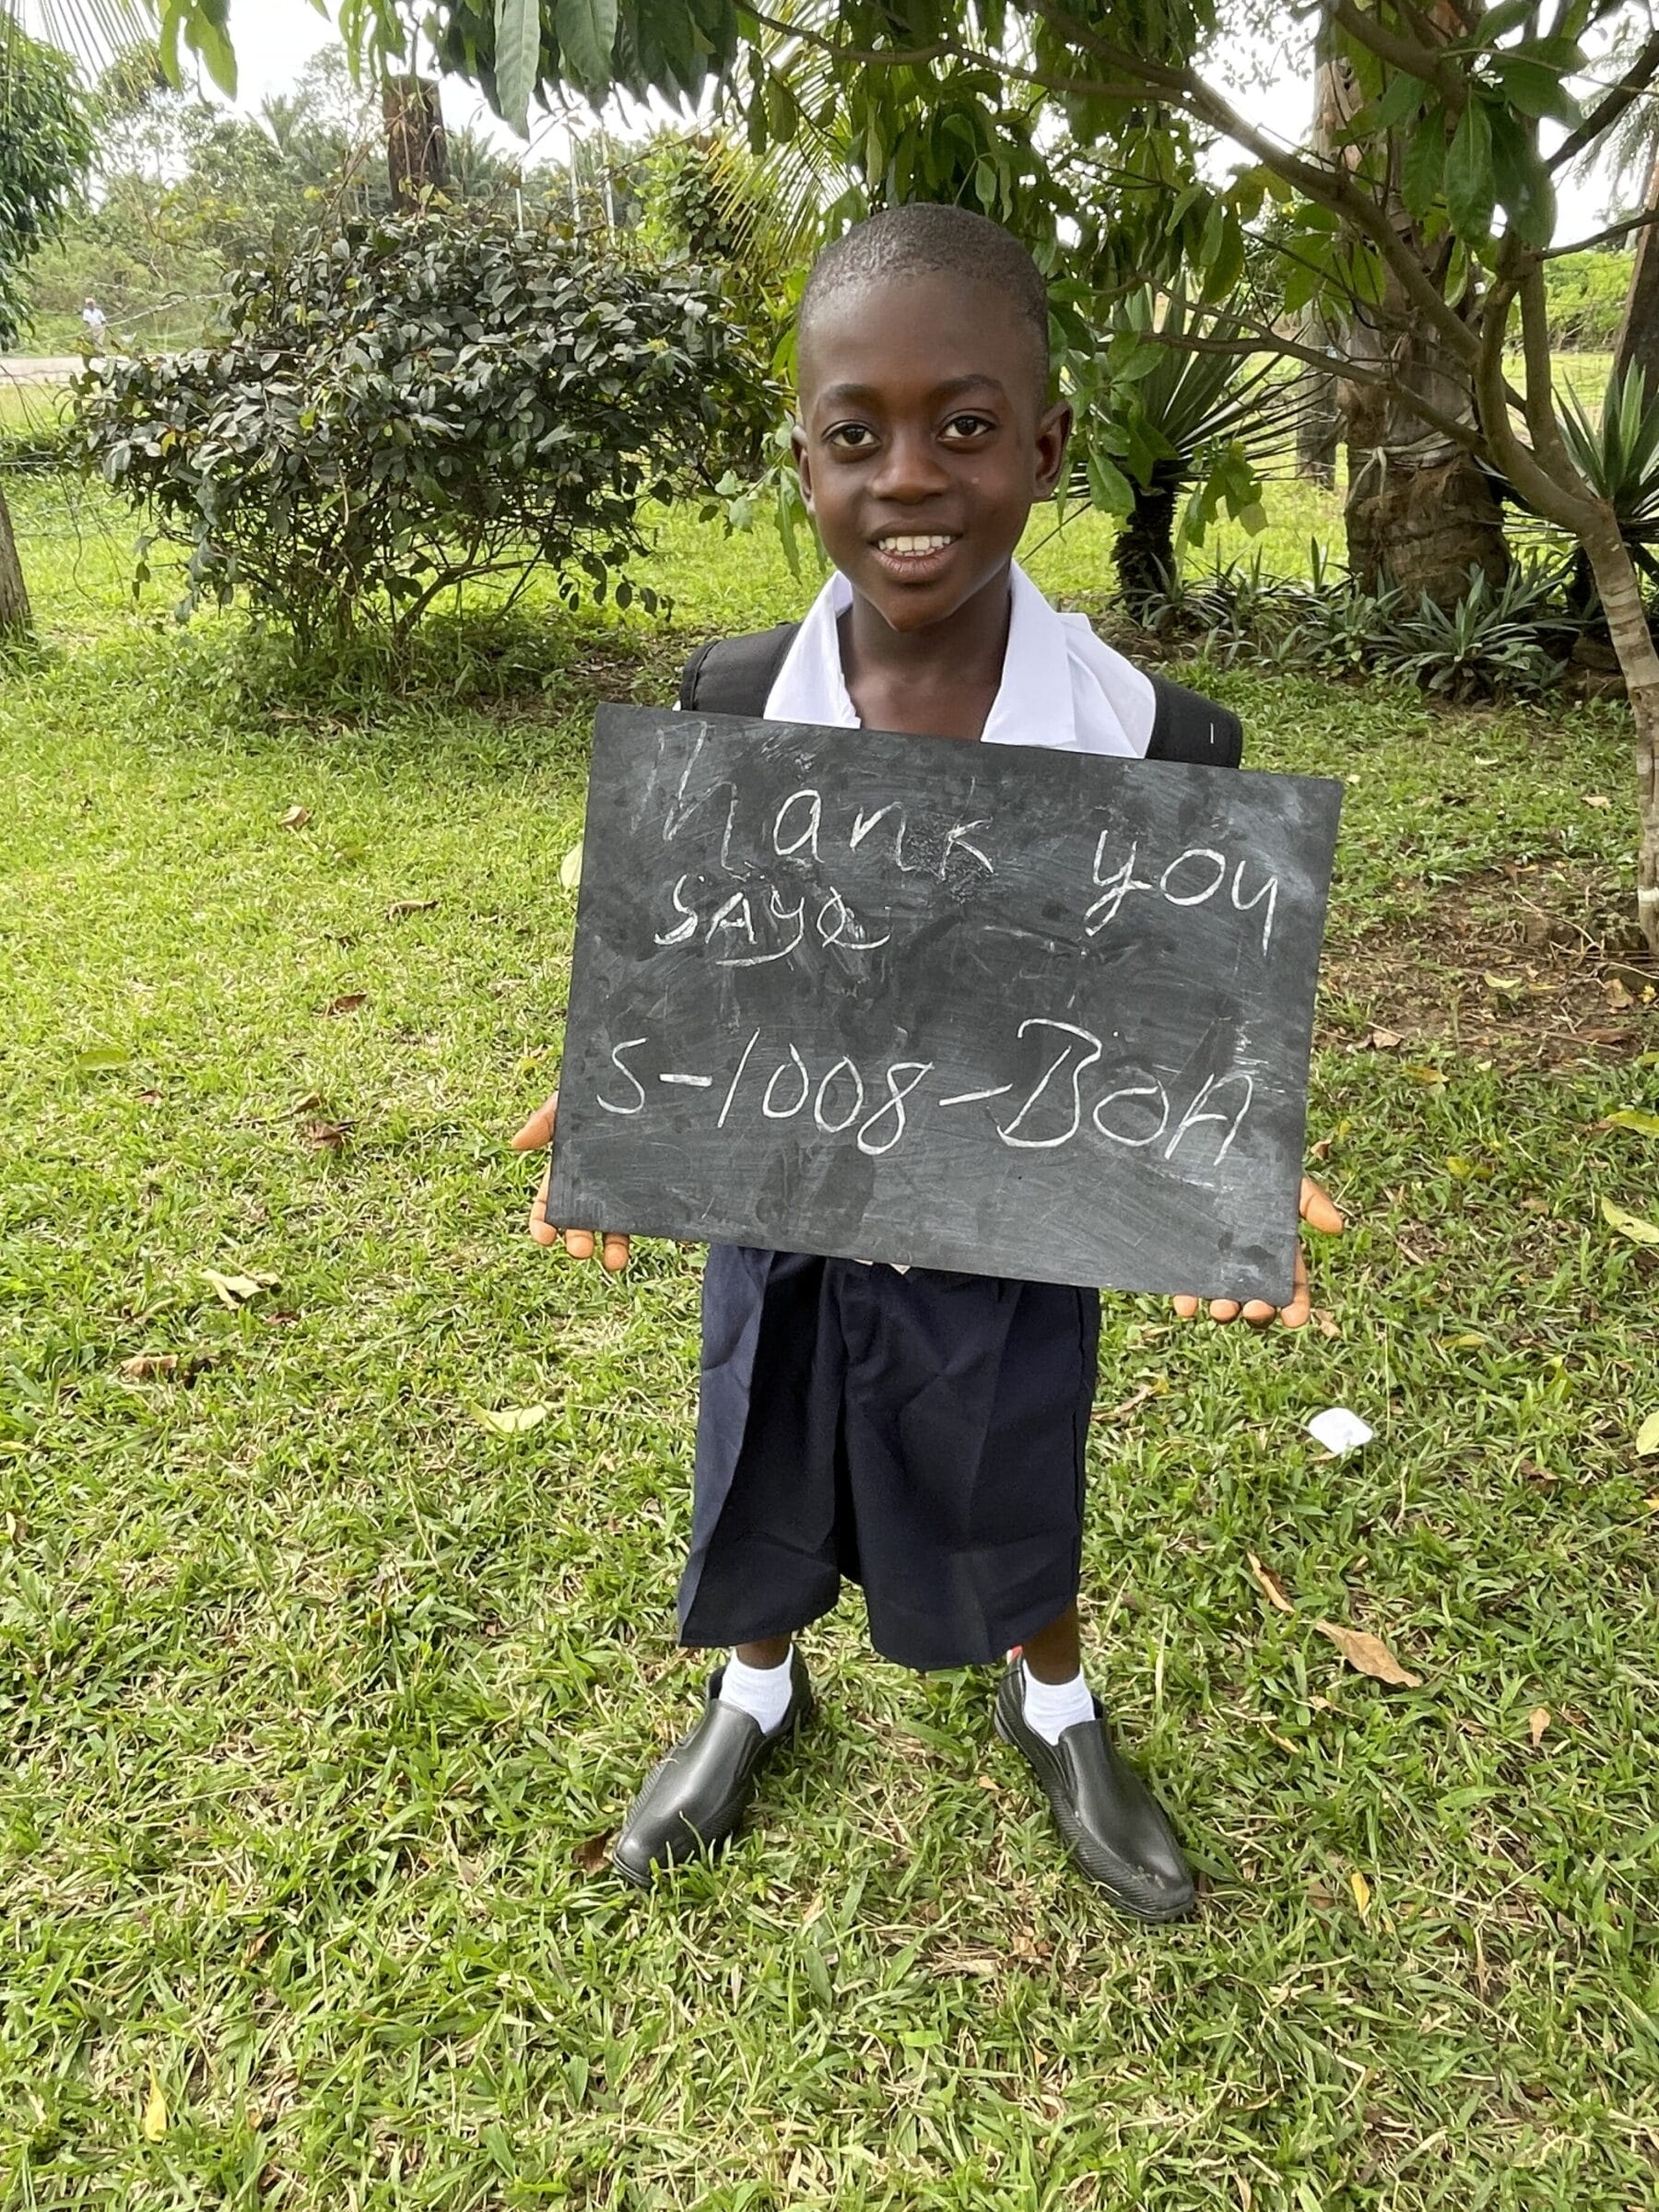 Thank you
SAYE
S-1008-BOA